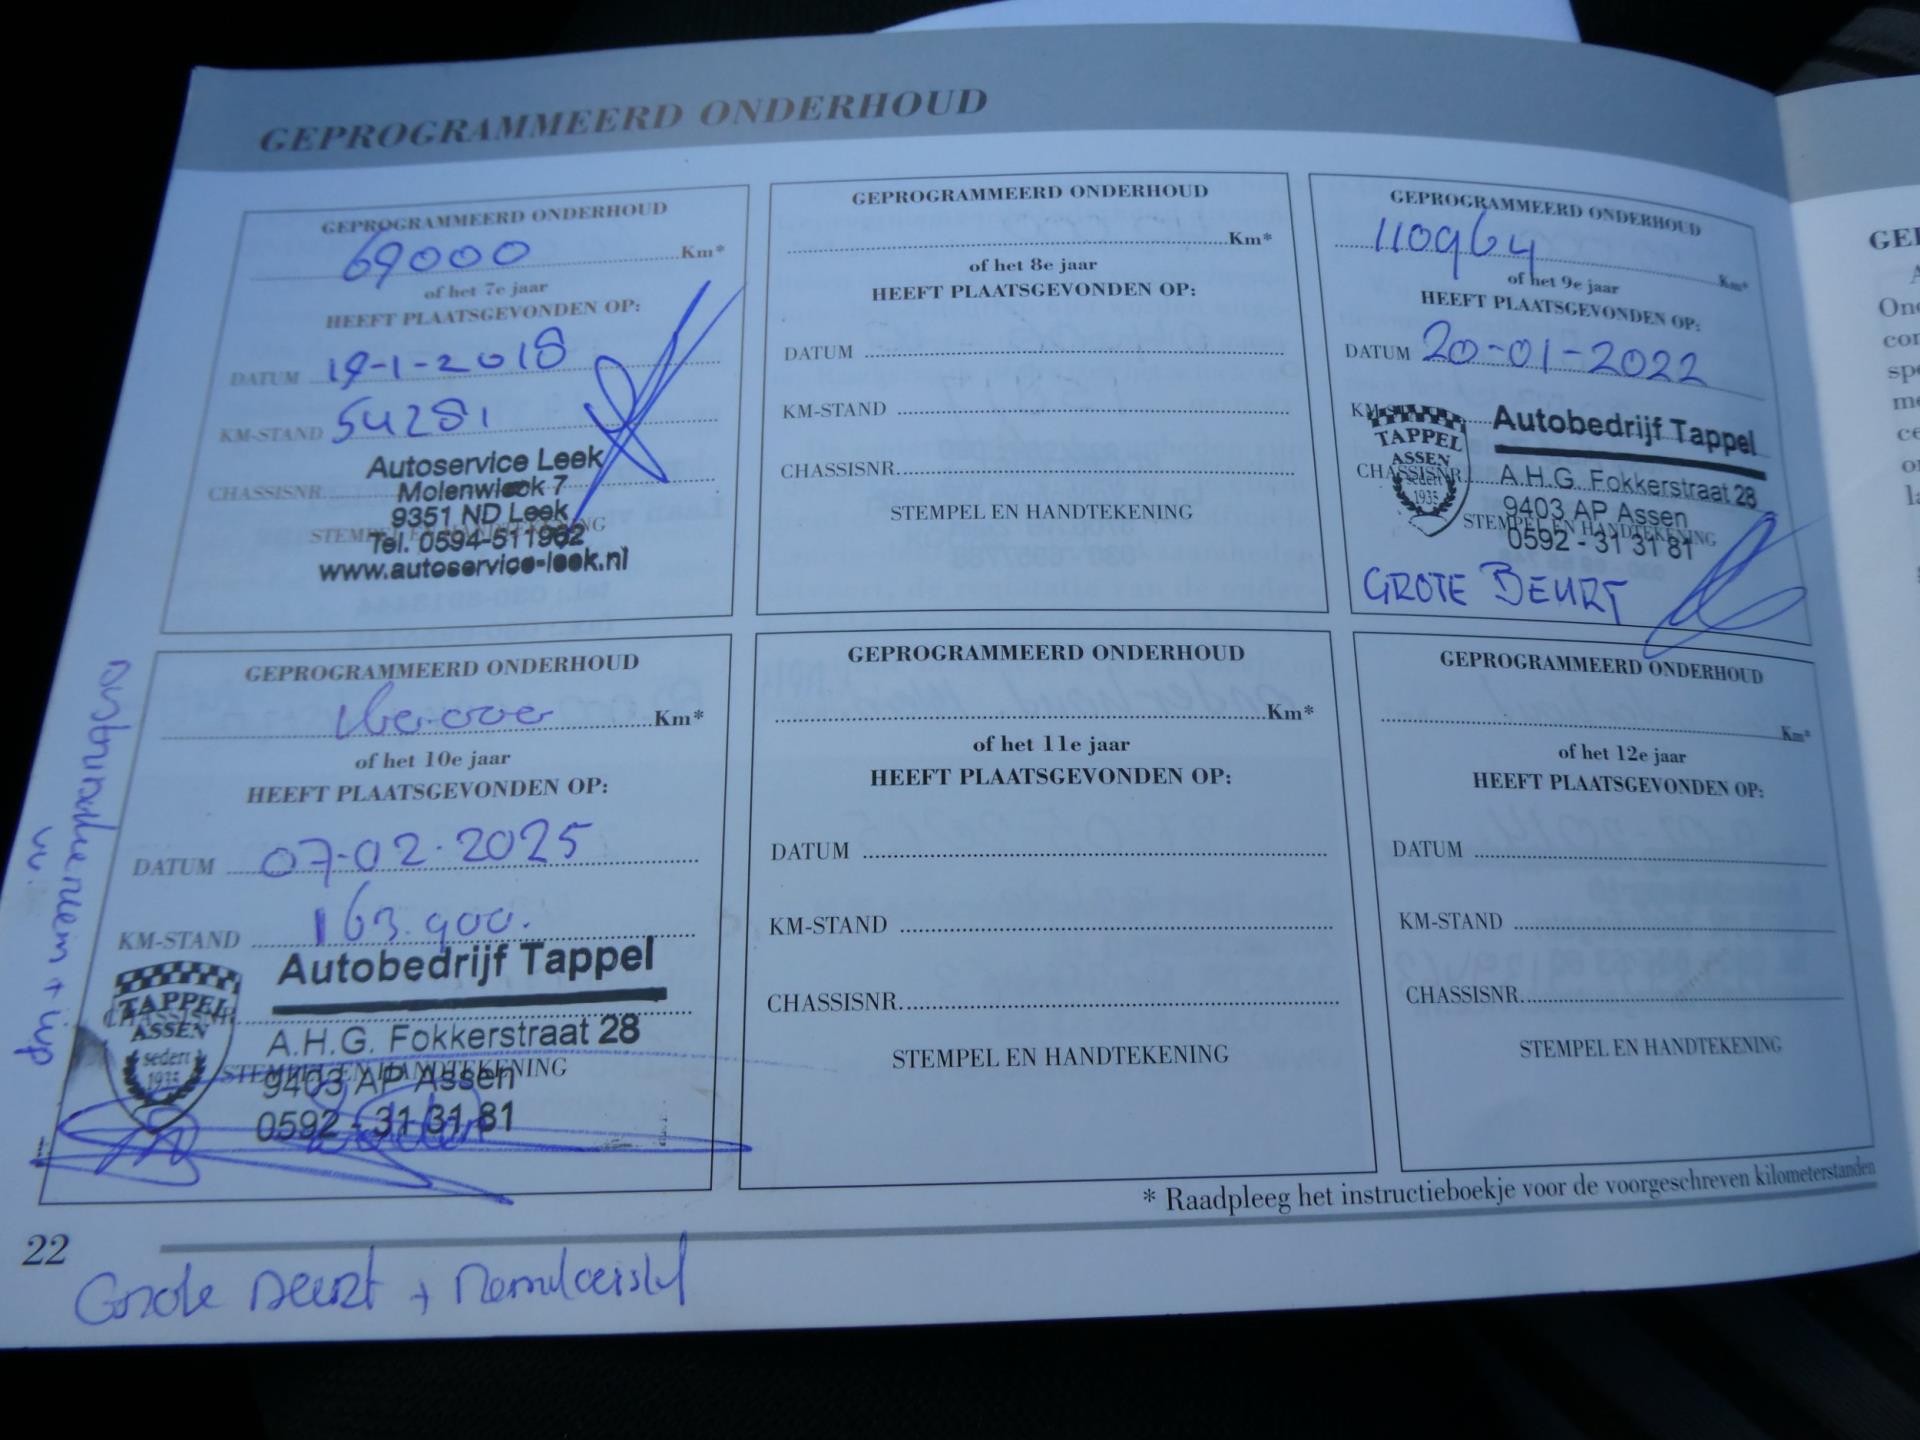 GEPROGRAMMEERD ONDERHOUD
GEPROGRAMMEERD ONDERHOUD
69000 Km*
of het 7e jaar
HEEFT PLAATSGEVONDEN OP:
DATUM 19-1-2018
KM-STAND 54281
CHASSISNR.
STEMPEL EN HANDTEKENING
Autoservice Leek
Molenwieck 7
9351 ND Leek
Tel. 0594-511962
www.autoservice-leek.nl
GEPROGRAMMEERD ONDERHOUD
Km*
of het 8e jaar
HEEFT PLAATSGEVONDEN OP:
DATUM
KM-STAND
CHASSISNR.
STEMPEL EN HANDTEKENING
GEPROGRAMMEERD ONDERHOUD
110964 Km*
of het 9e jaar
HEEFT PLAATSGEVONDEN OP:
DATUM 20-01-2022
KM-STAND
CHASSISNR.
STEMPEL EN HANDTEKENING
TAPPEL
ASSEN
sedert
1935
Autobedrijf Tappel
A.H.G. Fokkerstraat 28
9403 AP Assen
0592 - 31 31 81
GROTE BEURT
GEPROGRAMMEERD ONDERHOUD
Km*
of het 10e jaar
HEEFT PLAATSGEVONDEN OP:
DATUM 07-02-2025
KM-STAND 163.900.
CHASSISNR.
STEMPEL EN HANDTEKENING
TAPPEL
ASSEN
sedert
1935
Autobedrijf Tappel
A.H.G. Fokkerstraat 28
9403 AP Assen
0592 - 31 31 81
GEPROGRAMMEERD ONDERHOUD
Km*
of het 11e jaar
HEEFT PLAATSGEVONDEN OP:
DATUM
KM-STAND
CHASSISNR.
STEMPEL EN HANDTEKENING
GEPROGRAMMEERD ONDERHOUD
Km*
of het 12e jaar
HEEFT PLAATSGEVONDEN OP:
DATUM
KM-STAND
CHASSISNR.
STEMPEL EN HANDTEKENING
* Raadpleeg het instructieboekje voor de voorgeschreven kilometerstanden
22
Grote Beurt +